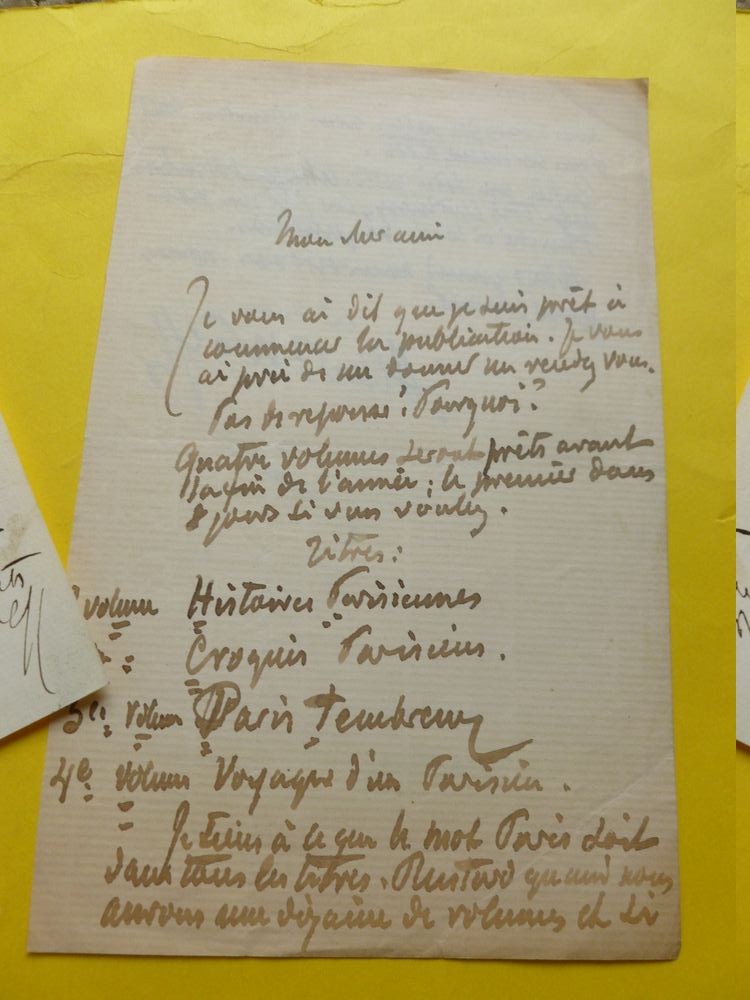 Mon cher ami
Je vous ai dit que je suis prêt à
commencer la publication. Je vous
ai prié de me donner un rendez vous.
Pas de reponse! Pourquoi?
Quatre volumes seront prêts avant
la fin de l'année; le premier dans
8 jours si vous voulez.
Titres:
volume Histoires Parisiennes
Croquis Parisiens.
3e volume Paris Tenebreux
4e volume Voyage d'un Parisien.
Je tiens à ce que le mot Paris soit
dans tous les titres. Plus tard quand nous
aurons une dizaine de volumes et si